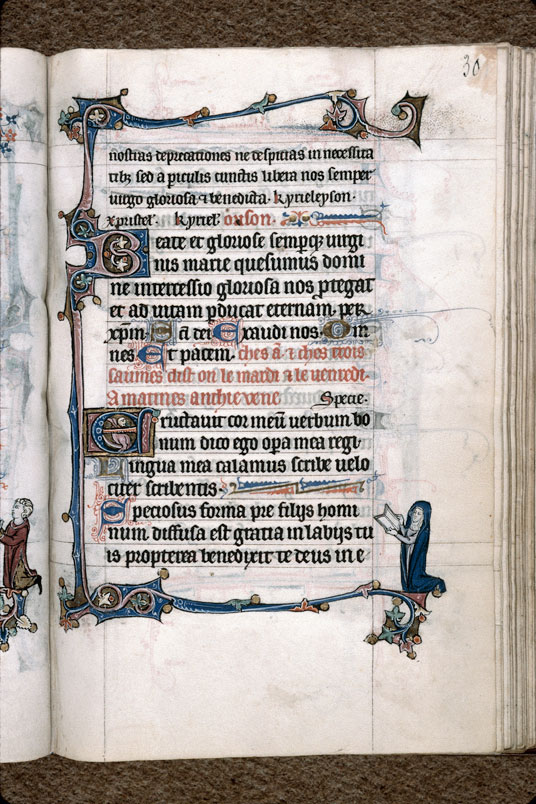 30
nostras deprecationes ne despicias in necessita
tibȝ sed a piculis cunctis libera nos semper
uirgo gloriosa ⁊ benedicta. kyrieleyson.
xpristel'. kyriel'. orison.
Beate et gloriose sempqȝ uirgi
nis marie quesumus domi
ne intercessio gloriosa nos ptegat
et ad uitam pducat eternam. per
xpm. D ā dei Exaudi nos. Om
nes Et patem. ches ā. ⁊ ches trois
saumes dist on le mardi ⁊ le uenredi.
A matines anchievene Specie.
Eructauit cor meū uerbum bo
num dico ego opa mea regi.
Lingua mea calamus scribe uelo
citer scribentis.
Speciosus forma pre filijs homi
num diffusa est gratia in labijs tu
is propterea benedixit te deus in e